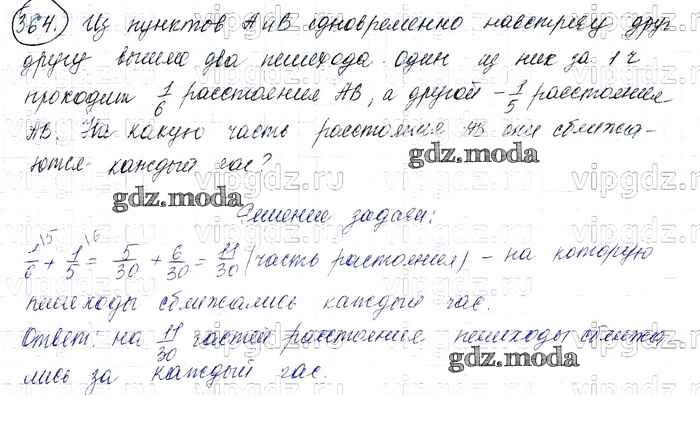 364. Из пунктов А и В одновременно навстречу друг
другу вышли два пешехода один из них за 1 ч
проходил 1/6 расстояния АВ, а другой - 1/5 расстояния
АВ. На какую часть расстояния АВ они сближа-
ются каждый час?
gdz.moda
gdz.moda
Решение задачи:
1/6 + 1/5 = 5/30 + 6/30 = 11/30 (часть растояния) - на которую
пешеходы сближались каждый час.
Ответ: на 11/30 частей расстояние пешеходы сближа
лись за каждый час.
gdz.moda